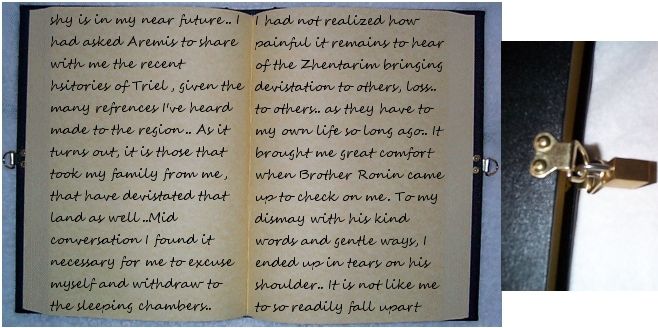 shy is in my near future.. I
had asked Aremis to share
with me the recent
hsitories of Triel , given the
many refrences I've heard
made to the region .. As it
turns out, it is those that
took my family from me ,
that have devistated that
land as well ..Mid
conversation I found it
necessary for me to excuse
myself and withdraw to
the sleeping chambers..
I had not realized how
painful it remains to hear
of the Zhentarim bringing
devistation to others, loss..
to others.. as they have to
my own life so long ago.. It
brought me great comfort
when Brother Ronin came
up to check on me. To my
dismay with his kind
words and gentle ways, I
ended up in tears on his
shoulder.. It is not like me
to so readily fall upart